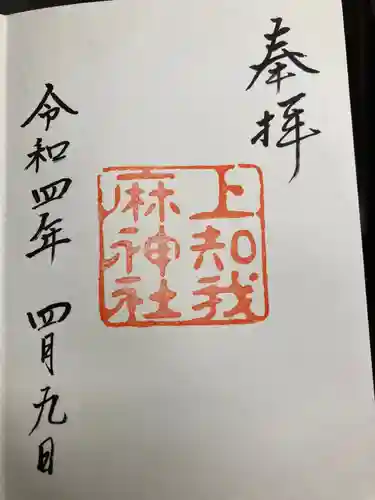 奉拝
上知我
麻神社
令和四年 四月九日